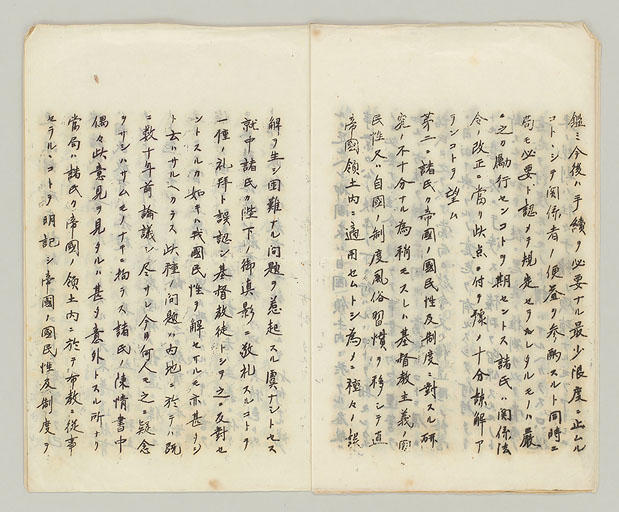 鑑ミ今後ハ手續ヲ必要ナル最少限度ニ止ムル
コトヽシテ関係者ノ便益ヲ参酌スルト同時ニ
局モ必要ト認メテ規定セラレタルモノハ嚴
ニ之カ勵行センコトヲ期セン諸氏ハ関係法
令ノ改正ニ當リ此点ニ付予メ十分諒解ア
ランコトヲ望ム
第二、諸氏カ帝國ノ國民性及制度ニ對スル研
究ノ不十分ナル為稍モスレハ基督教主義ノ
民性又ハ自國ノ制度風俗習慣ヲ移シテ直
帝國領土内ニ適用セムトシ為メニ種々ノ誤
解ヲ生シ困難ナル問題ヲ惹起スル虞ナシトセス
就中諸氏カ陛下ノ御真影ニ敬礼スルコトヲ
一種ノ礼拜ト誤認シ基督教徒トシテ之ニ反對セ
ントスルカ如キハ我國民性ヲ解セサルモ亦甚シ
ト云ハサルヘカラス此種ノ問題ハ内地ニ於テハ既
ニ数十年前論議シ尽サレ今日何人モ之ニ疑念
ヲサシハサムモノナキニ拘ラス諸氏ノ陳情書中
偶々此意見ヲ見タルハ甚タ意外トスル所ナリ
當局ハ諸氏カ帝國ノ領土内ニ於テ布教ニ從事
セラルヽコトヲ明記シ帝國ノ國民性及制度ヲ